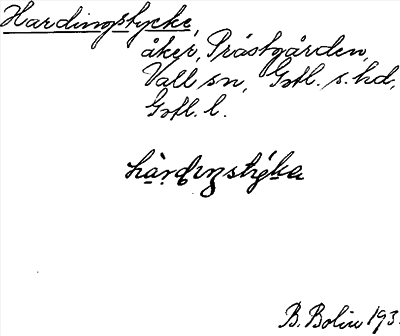 Hardingstycke,
åker, Prästgården,
Vall sn, Gotl. s. hd,
Gotl. l.
B. Bolin 193